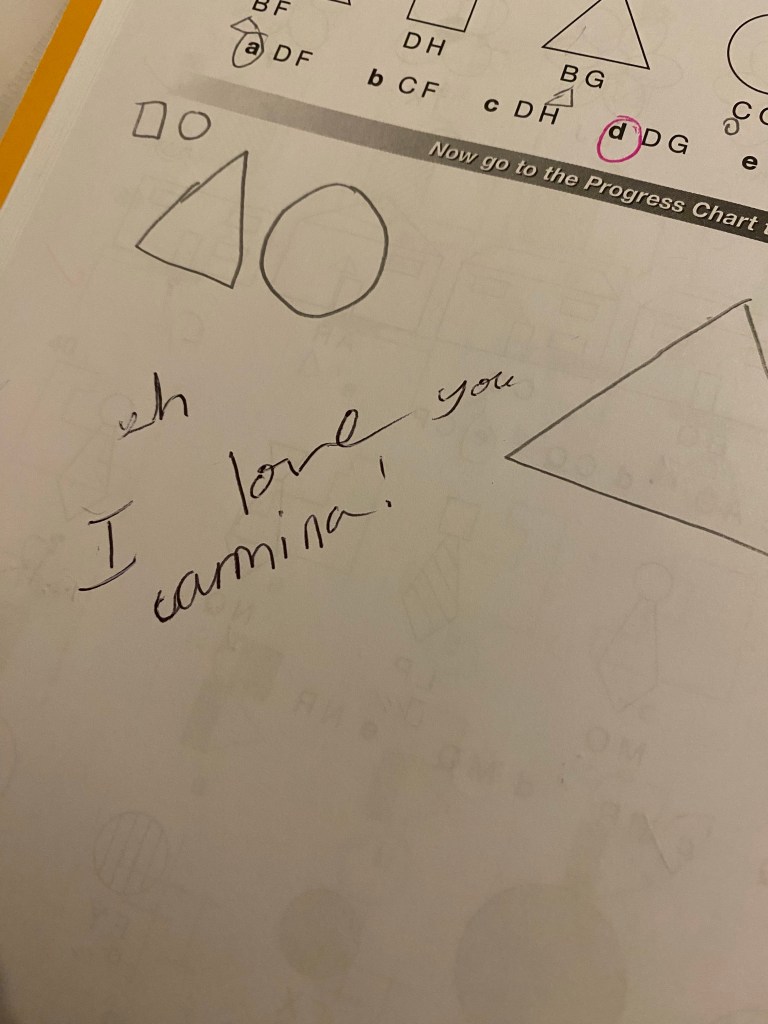 BF
DH
BG
a DF
b CF
c DH
d DG
e
Now go to the Progress Chart
eh
I love you
carmina!